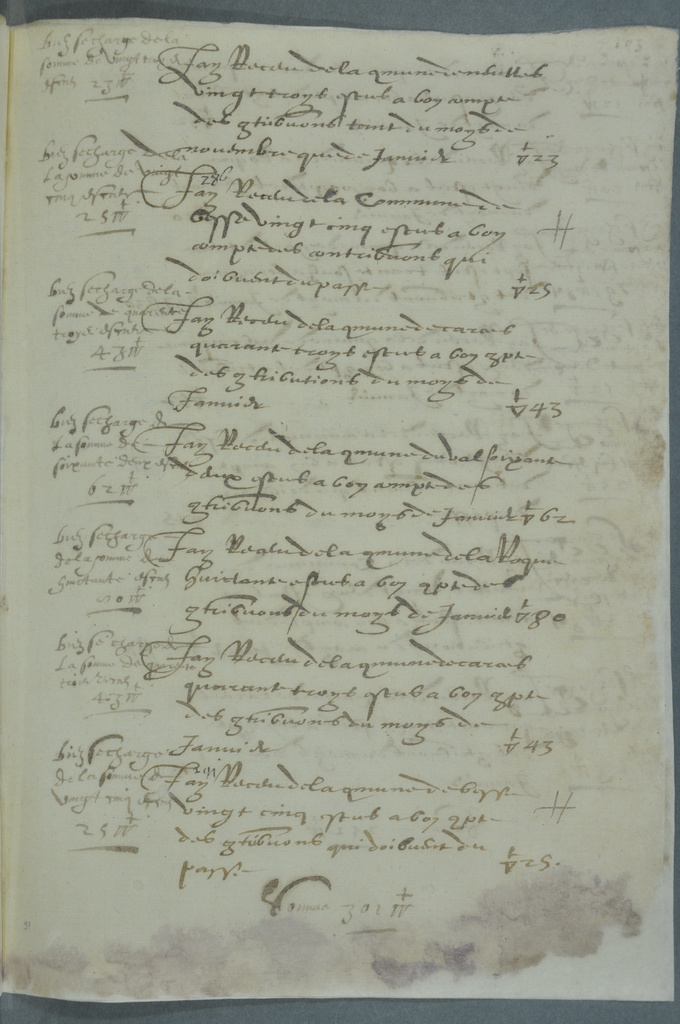 bien se charge de la
somme de vingt troys
escus
23
Jay Receu de la qmune denbuttes
vingt troys escus a bon compte
des qtribuons tant du moys de
novembre que de Janvier 23
bien se charge de la
la somme de vingt
cinq escus
25
Jay Receu de la Commune de
besse vingt cinq escus a bon
compte des contribuons qui
doibvent du passe 25
bien se charge de la
somme de quarante
troys escus
43
Jay Receu de la qmune de carces
quarante troys escus a bon qpte
des qtributions du moys de
Janvier 43
bien se charge de
la somme de
soixante deux escus
62
Jay Receu de la qmune du val soixante
deux escus a bon compte des
qtribuons du moys de Janvier 62
bien se charge
de la somme de
huictante escus
80
Jay Receu de la qmune de la Roque
huictante escus a bon qpte des
qtribuons du moys de Janvier 80
bien se charge de
la somme de quarante
troys escus
43
Jay Receu de la qmune de carces
quarante troys escus a bon qpte
des qtribuons du moys de
Janvier 43
bien se charge
de la somme de
vingt cinq escus
25
Jay Receu de la qmune de besse
vingt cinq escus a bon qpte
des qtribuons qui doibvent du
passe 25
Somme 301